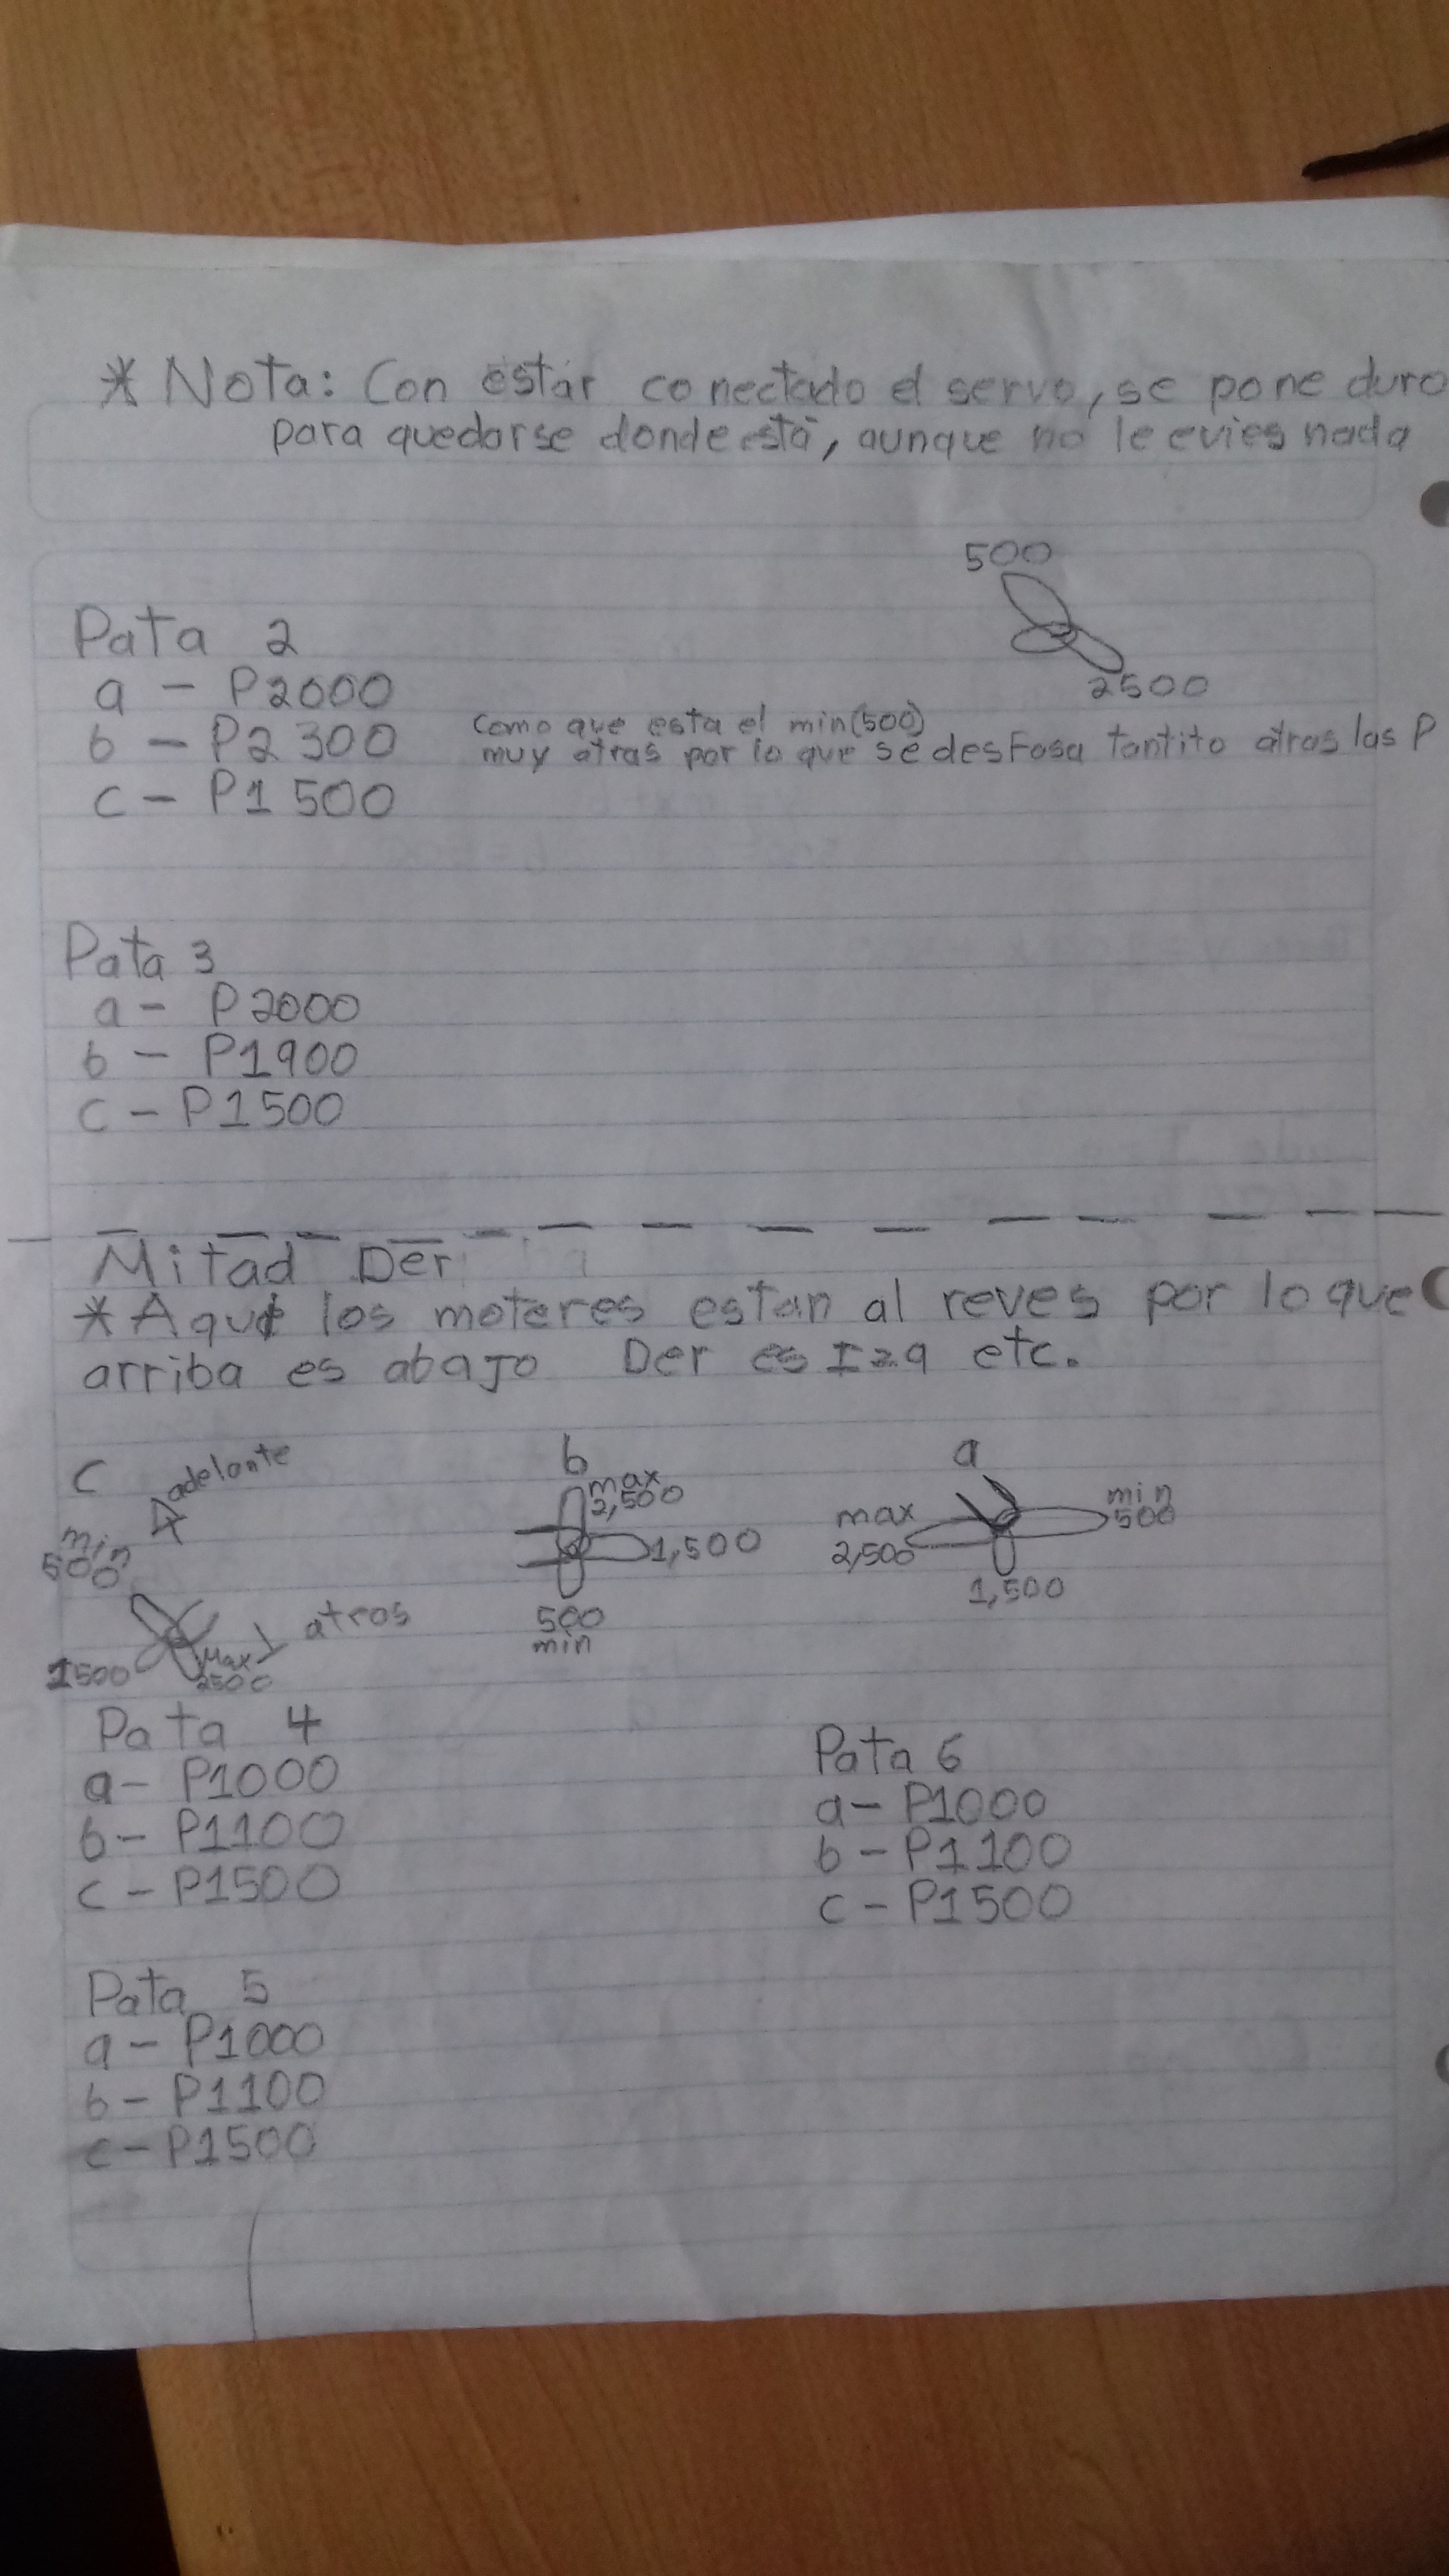 * Nota: Con estar conectado el servo, se pone duro
para quedarse donde está, aunque no le evies nada
500
2500
Pata 2
a - P2000
b - P2300
c - P1500
como que esta el min(500)
muy atras por lo que se desfasa tantito atras las P
Pata 3
a - P2000
b - P1900
c - P1500
Mitad Der
* Aqui los moteres estan al reves por lo que
arriba es abajo Der es Izq etc.
c
adelante
min
500
1500
Max
2500
atras
b
max
2,500
1,500
500
min
a
max
2,500
min
500
1,500
Pata 4
a - P1000
b - P1100
c - P1500
Pata 6
a - P1000
b - P1100
c - P1500
Pata 5
a - P1000
b - P1100
c - P1500